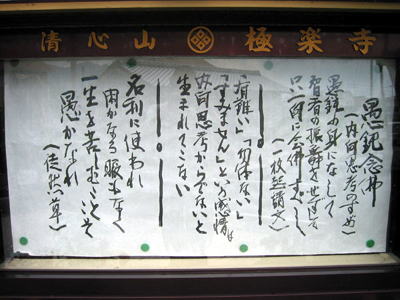 清心山 極楽寺
愚鈍念佛
（内向思考のすすめ）
愚鈍の身になして
智者の振舞をせずして
只一向に念佛すべし
（一枚起請文）
「有難い」「勿体ない」
「すみません」という感情は
内向思考からでないと
生まれてこない
名利に使われ
閑かなる暇もなく
一生を苦しむることこそ
愚かなれ
（徒然草）